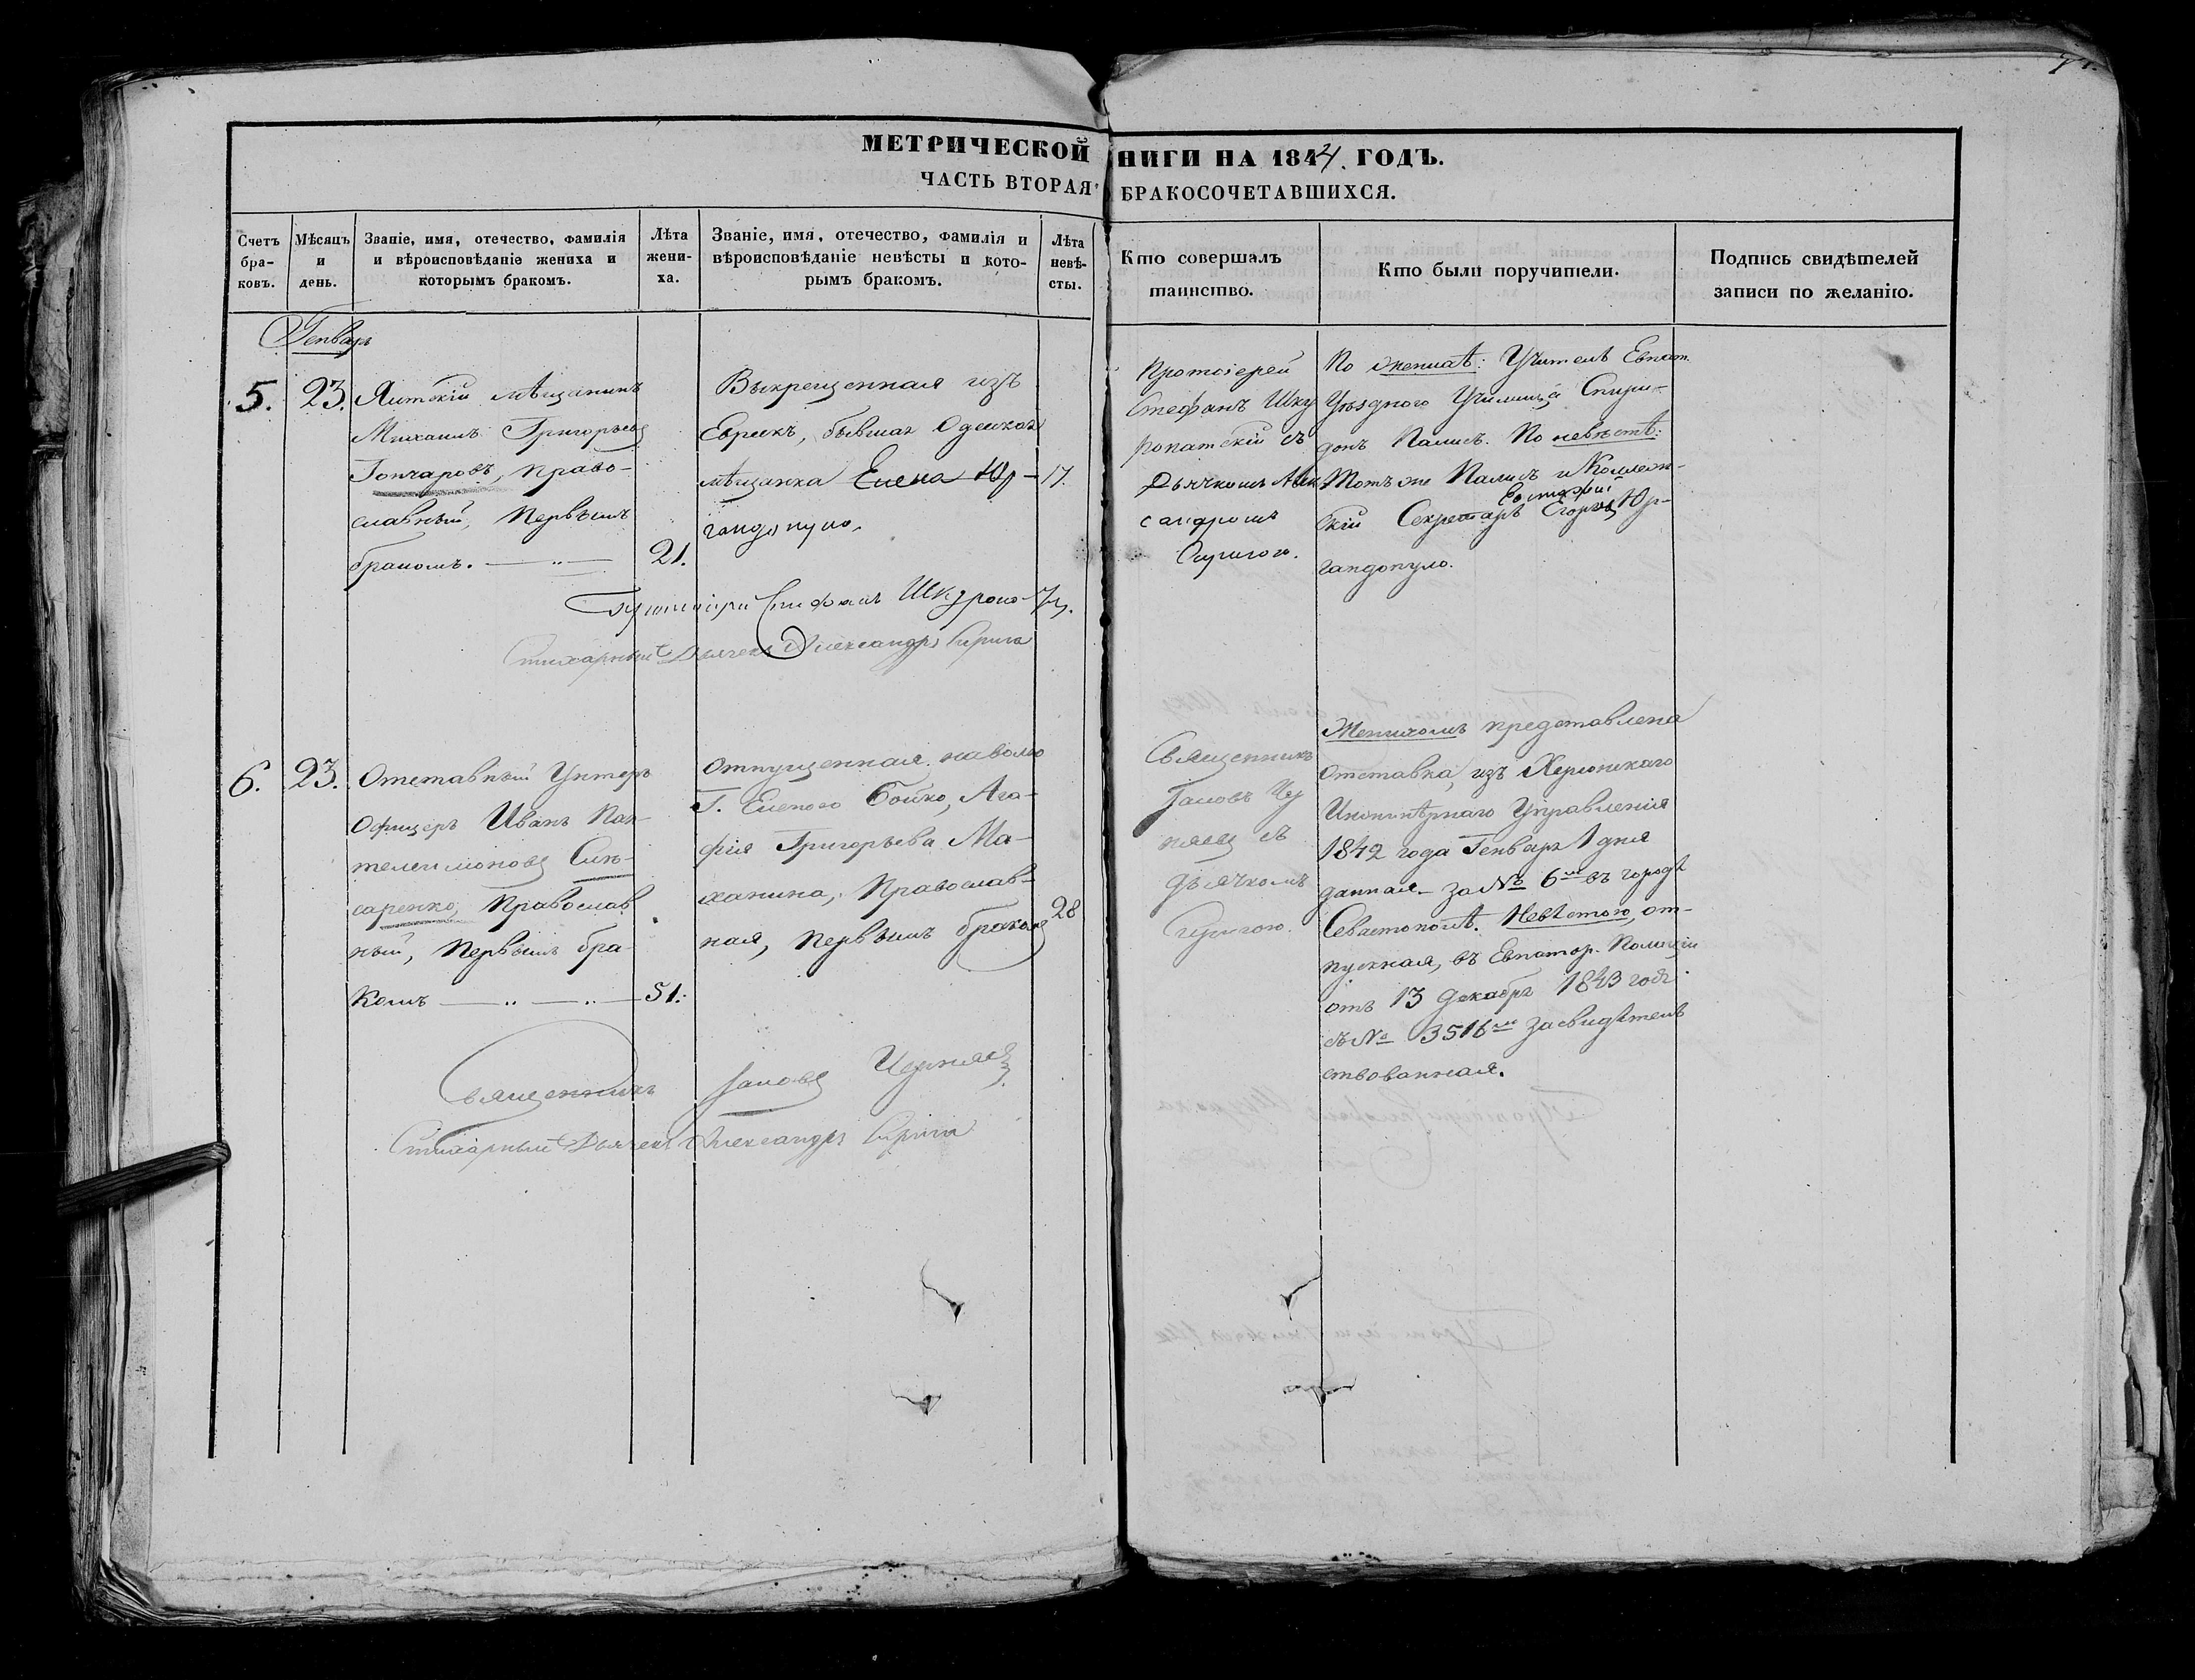 МЕТРИЧЕСКОЙ НИГИ НА 1844. ГОДЪ.
ЧАСТЬ ВТОРАЯ БРАКОСОЧЕТАВШИХСЯ.
Счетъ бра-ковъ.
Мѣсяцъ и день.
Званіе, имя, отечество, фамилія
и вѣроисповѣданіе жениха и
которымъ бракомъ.
Лѣта
жени-
ха.
Званіе, имя, отечество, фамилія и
вѣроисповѣданіе невѣсты и кото-
рымъ бракомъ.
Лѣта
невѣ-
сты.
Кто совершалъ
таинство.
Кто были поручители.
Подпись свидѣтелей
записи по желанію.
Генварь
5. 23.
Ялтскій мѣщанинъ
Михаилъ Григорьевъ
Гончаровъ, право-
славный, первымъ
бракомъ. 21.
Выкрещенная изъ
Евреекъ, бывшая Одеская
мѣщанка Елена Юр- 17.
гандопуло,
Протоіерей
Стефанъ Шку
ропатскій съ
Дьячкомъ Алек
сандромъ
Сиригою.
По женихѣ: Учитель Евпат.
Уѣзднаго Училища Спири-
донъ Палисъ. По невѣстѣ:
Тотъ же Палисъ и Коллеж-
скій Секретарь Егоръ Юр-
гандопуло.
Протоіерей Стефанъ Шкуропат.
Стихарный Дьячекъ Александръ Сирига
6. 23.
Отставный Унтеръ
Офицеръ Иванъ Пан-
телеимоновъ Слѣ-
саренко, Православ
ный, первымъ бра
комъ 51.
Отпущенная на волю
Г. Еленою Бойко, Ага-
фія Григорьева Ма-
ханина, Православ-
ная, первымъ бракомъ 28
Священникъ
Іаковъ Чер
няевъ съ
дьячкомъ
Сиригою.
Женихомъ представлена
отставка, изъ Херсонскаго
Инженѣрнаго Управленія
1842 года Генваря 1 дня
данная за № 6 въ городѣ
Севастополѣ. Невѣстою, от-
пускная, въ Евпатор. Полиціи
отъ 13 Декабря 1843 года
съ № 3516 засвидѣтель
ствованная.
Священникъ Іаковъ Черняевъ.
Стихарный Дьячекъ Александръ Сирига